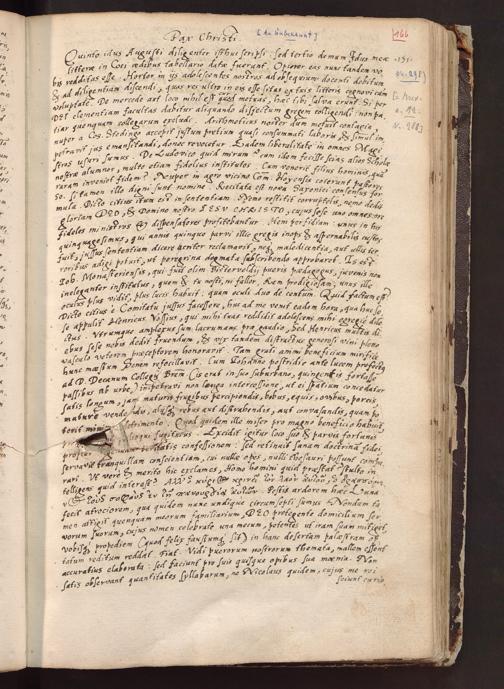 Pax Christi. [An Unbekannt]
166
Quinto idus Augusti diligenter isthuc scripsi: sed tertio demum Idus meæ
litteræ in Coei ædibus tabellario datæ fuerant. Opperior eas nunc tandem vo-
bis redditas esse. Hortor in ijs adolescentes nostros ad obsequium docenti debitum
& ad diligentiam discendi, quas res ultro in eis esse sitas ex tuis litteris cognovi cum
voluptate. De mercede aut loco nihil est quod motuas, hæc tibi salva erunt. Si per
DEI clementiam facultas dabitur aliquando discessum gregem colligendi: non pa-
tiar quenquam collegarum excludi. Arithmeticus noster dum metuit contagia,
nuper a Cos. Stedingo accepit justum pretium quasi consummati laboris, & simul im-
petravit jus emansitandi, donec revocetur. Eadem liberalitate in omnes Magi-
stros usuri sumus. De Ludovico quid mirum? cum idem fecisse scias alios Scholæ
nostræ alumnos, multo etiam fidelius institutos. Cum venerit filius hominis, quam
raram inveniet fidem? Nuper in agro vicino Com. Hoyensis coierunt pastores
50. si tamen illo digni sunt nomine. Recitata est nova Saxonici consensus for-
mula. Dicto citius itum est in sententiam. Nemo restitit corruptelæ, nemo dedit
gloriam DEO, & Domino nostro IESV CHRISTO, cujus sese uno omnes ore
fideles ministros & dispensatores profitebantur. Hem perfidiam: unus in his
quinquagesimus, qui annis quinque parvi illic gregis inops & aspernabilis custos
fuit, jussus sententiam dicere leniter reclamavit, neque maledicentia, aut ullis ter-
roribus adigi potuit, ut peregrina dogmata subscribendo approbaret. Is est
Joh. Monasteriensis, qui fuit olim Bistervoldij pueris pædagogus, juvenis non
ineleganter institutus, quem & tu nosti, ni fallor. Rem prodigiosam: unus ille
oculus plus vidit, plus lucis habuit, quam oculi duo de centum. Quid factum est?
Dicto citius è Comitatu jussus facessere, huc ad me venit eadem hora, qua huc se-
se appulit Henricus Vossius, qui mihi tuas reddidit adolescens mihi egregie dile-
ctus. Utrumque amplexus sum lacrumans præ gaudio, sed Henricus multis di-
ebus se se nobis dedit fruendum, & vix tandem distractus generosi vini pleno
vasculo veterem præceptorem honoravit. Tam grati animi beneficium mirifice
hunc mæstum Senem refocillavit. Cum Johanne postridie ante lucem profectus
ad D. Decanum Collegij Brem. (is erat in suo suburbano, quingentis fortasse
passibus ab urbe) impetravi non longa intercessione, ut ei spatium concedatur
satis longum, jam maturis frugibus percipiendis, bobus, equis, ovibus, porcis
mature vendendis, alijsque rebus aut distrahendis, aut convasandis, quam po-
terit minimo detrimento. Quod quidem ille miser pro magno beneficio habuit,
alioqui fugiturus. Excidit igitur loco suo & parvis fortunis
propter veritatis confessionem: sed retinuit sanam doctrinam fidei,
servavit tranquillam conscientiam, cui nullæ opes, nulli thesauri possunt compa-
rari. Ut vere & merito hic exclames, Homo homini quid præstat? stulto in-
telligens quid interest?
Testis ardorem hæc Luna
fecit atrociorem, qua quidem nunc undique circumsepti sumus. Nondum ta-
men attigit quenquam meorum familiarium, DEO protegente domicilium ser-
vorum suorum, cujus nomen celebrate una mecum, potentes ut iram suam mitiget,
vobisque propediem (quod felix faustumque sit) in hanc desertam palæstram op-
tatum reditum reddat. Fiat. Vidi puerorum nostrorum themata, mallem essent
accuratius elaborata: sed faciunt pro suis quisque opibus sua mœnia. Non
satis observant quantitates syllabarum, ne Nicolaus quidem, cujus me ni-